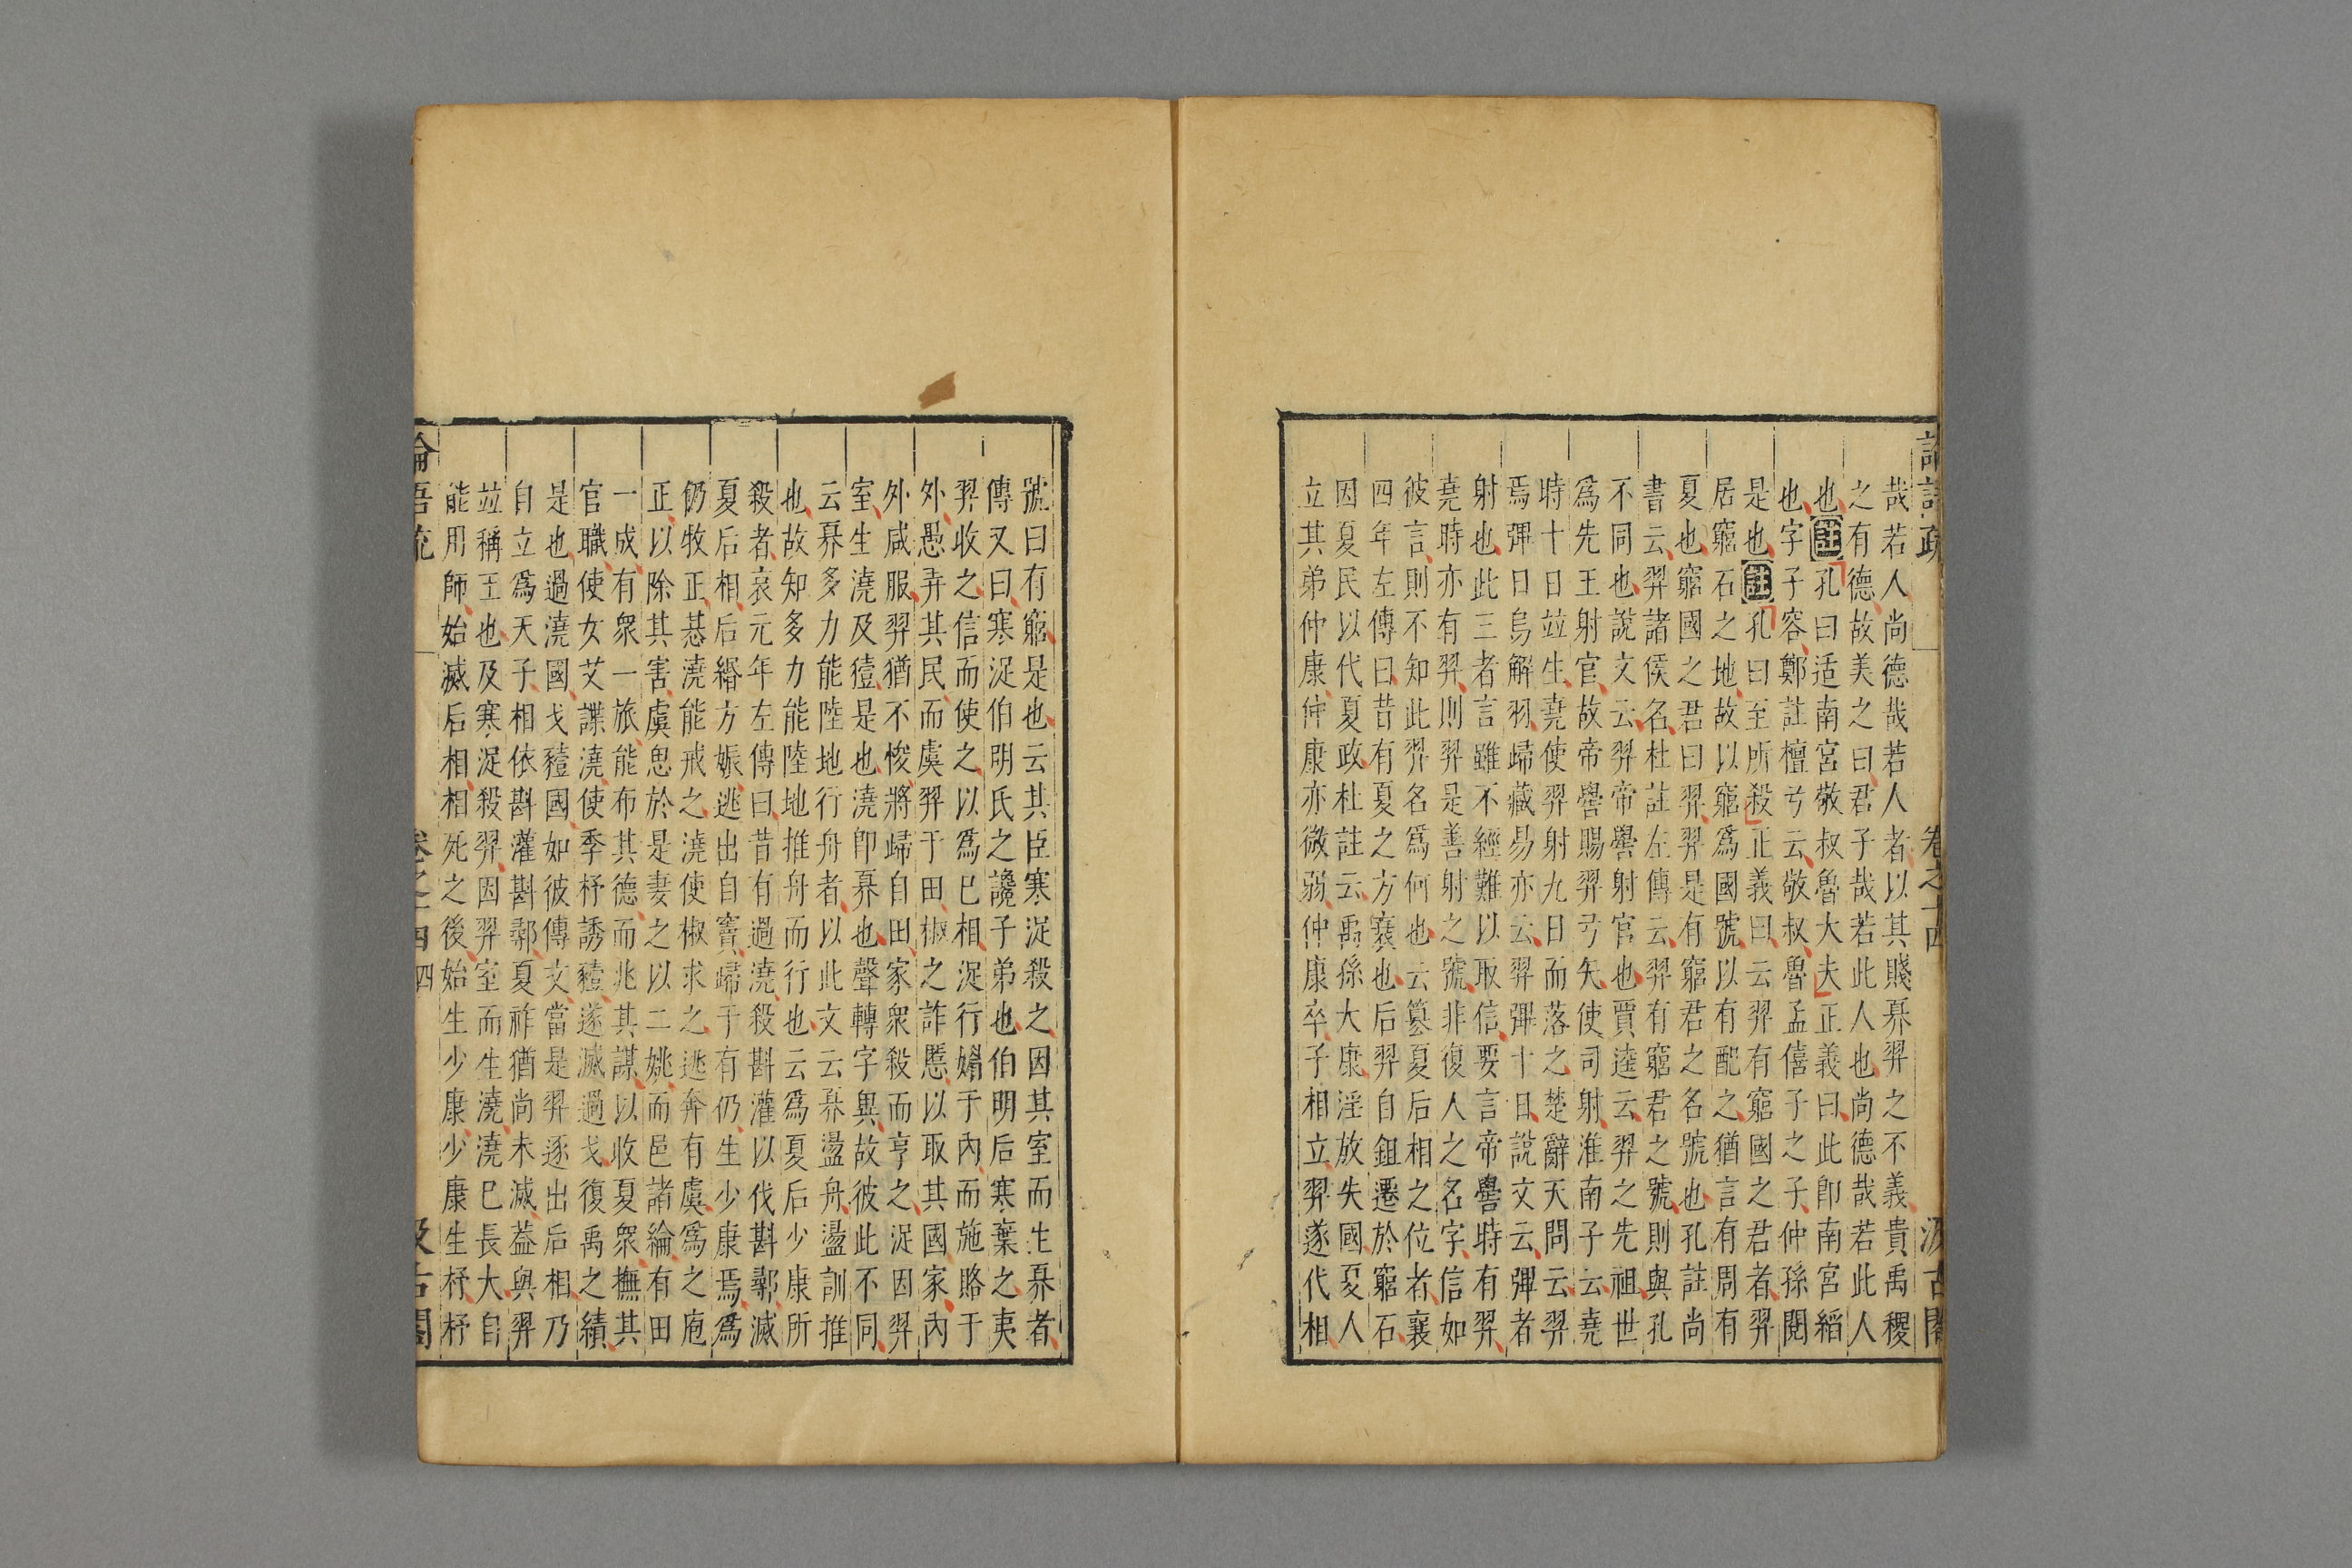 哉若人尚德哉若人者以其賤奡羿之不義貴禹稷
之有德故美之曰君子哉若此人也尚德哉若此人
也註孔曰适南宮敬叔魯大夫正義曰此卽南宮縚
也字子容鄭註檀弓云敬叔魯孟僖子之子仲孫閱
是也註孔曰至所殺正義曰云羿有窮國之君者羿
居窮石之地故以窮爲國號以有配之猶言有周有
夏也窮國之君曰羿羿是有窮君之名號也孔註尚
書云羿諸侯名杜註左傳云羿有窮君之號則與孔
不同也說文云羿帝嚳射官也賈逵云羿之先祖世
爲先王射官故帝嚳賜羿弓矢使司射淮南子云堯
時十日竝生堯使羿射九日而落之楚辭天問云羿
焉彈日烏解羽歸藏易亦云羿彈十日說文云彈者
射也此三者言雖不經難以取信要言帝嚳時有羿
堯時亦有羿則羿是善射之號非復人之名字信如
彼言則不知此羿名爲何也云簒夏后相之位者襄
四年左傳曰昔有夏之方衰也后羿自鉏遷於窮石
因夏民以代夏政杜註云禹孫大康淫放失國夏人
立其弟仲康仲康亦微弱仲康卒子相立羿遂代相
語疏
卷之十四
汲古閣
號曰有窮是也云其臣寒浞殺之因其室而生奡者
傳又曰寒浞伯明氏之讒子弟也伯明后寒棄之夷
羿收之信而使之以爲巳相浞行媚于內而施賂于
外愚弄其民而虞羿于田樹之詐慝以取其國家內
外咸服羿猶不悛將歸自田家衆殺而亨之浞因羿
室生澆及豷是也澆卽奡也聲轉字異故彼此不同
云奡多力能陸地行舟者以此文云奡盪舟盪訓推
也故知多力能陸地推舟而行也云爲夏后少康所
殺者哀元年左傳曰昔有過澆殺斟灌以伐斟鄩滅
夏后相后緡方娠逃出自竇歸于有仍生少康焉爲
仍牧正惎澆能戒之澆使椒求之逃奔有虞爲之庖
正以除其害虞思於是妻之以二姚而邑諸綸有田
一成有衆一旅能布其德而兆其謀以收夏衆撫其
官職使女艾諜澆使季杼誘豷遂滅過戈復禹之績
是也過澆國戈豷國如彼傳文當是羿逐出后相乃
自立爲天子相依斟灌斟鄩夏祚猶尚未滅葢與羿
竝稱王也及寒浞殺羿因羿室而生澆澆巳長大自
能用師始滅后相相死之後始生少康少康生杼杼
論語疏
卷之十四
四
汲古閣